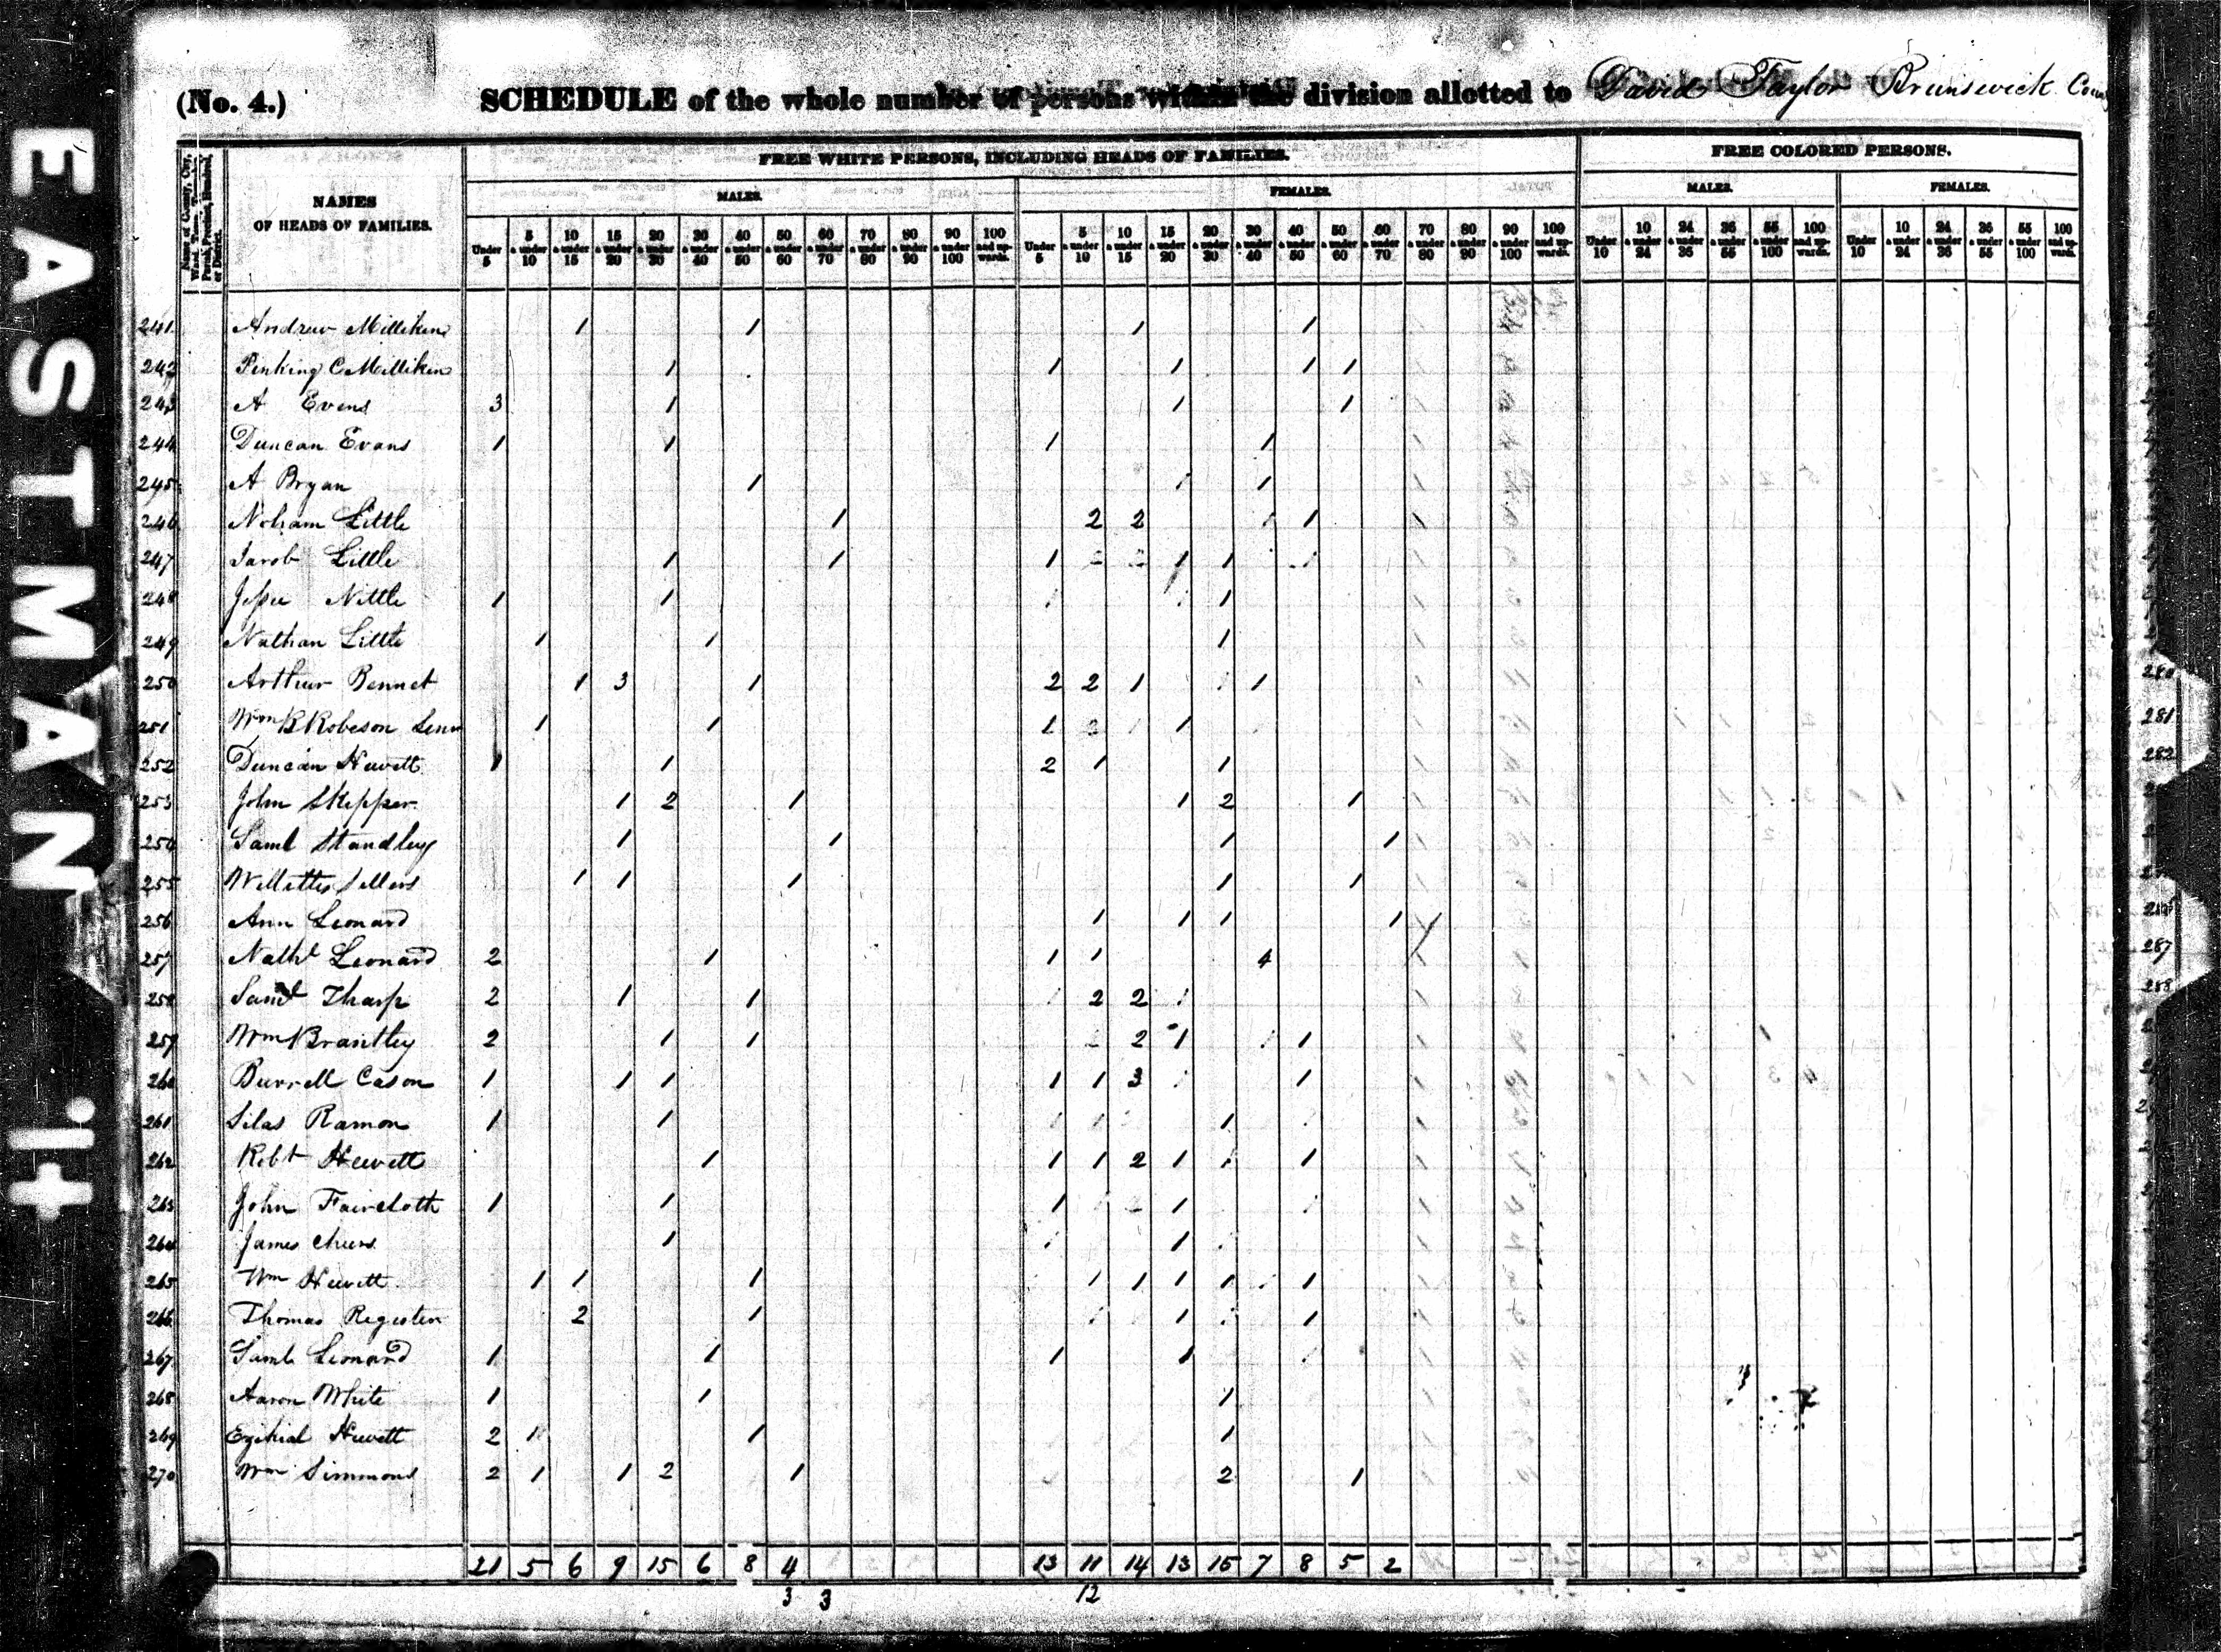 EASTMAN
(No. 4.) SCHEDULE of the whole number of persons within the division allotted to David Taylor Brunswick
NAMES OF HEADS OF FAMILIES.
FREE WHITE PERSONS, INCLUDING HEADS OF FAMILIES.
FREE COLORED PERSONS.
MALES. FEMALES. MALES. FEMALES.
Under 5 | 5 & under 10 | 10 & under 15 | 15 & under 20 | 20 & under 30 | 30 & under 40 | 40 & under 50 | 50 & under 60 | 60 & under 70 | 70 & under 80 | 80 & under 90 | 90 & under 100 | 100 and upwards.
Under 5 | 5 & under 10 | 10 & under 15 | 15 & under 20 | 20 & under 30 | 30 & under 40 | 40 & under 50 | 50 & under 60 | 60 & under 70 | 70 & under 80 | 80 & under 90 | 90 & under 100 | 100 and upwards.
Under 10 | 10 & under 24 | 24 & under 36 | 36 & under 55 | 55 & under 100 | 100 and upwards.
Under 10 | 10 & under 24 | 24 & under 36 | 36 & under 55 | 55 & under 100 | 100 and upwards.
241 Andrew Milliken 1 1 1 1
242 C Milliken 1 1 1 1 1
243 A Evens 3 1 1 1
244 Duncan Evans 1 1 1 1
245 A Bryan 1 1 1
246 Little 1 2 2 1
247 Jacob Little 1 1 1 1 1
248 1 1 1
249 Nathan Little 1 1 1
250 Arthur Bennet 1 3 1 2 2 1 1
251 Wm B Robeson 1 1 1 1
252 Duncan Hewett 1 1 2 1 1
253 John Skipper 1 2 1 1 2 1
254 Saml Standley 1 1 1 1
255 Sellers 1 1 1 1 1
256 Ann Leonard 1 1 1 1
257 Nathl Leonard 2 1 1 1 4
258 Saml Tharp 2 1 1 2 2
259 Wm Brantley 2 1 1 2 1 1
260 Burrell Cason 1 1 1 1 1 3 1
261 Silas Ramon 1 1 1
262 Robt Hewett 1 1 1 2 1 1
263 John Faircloth 1 1 1 1
264 James 1 1
265 Wm Hewett 1 1 1 1 1 1 1 1
266 Thomas Register 2 1 1 1
267 Saml Leonard 1 1 1 1
268 Aaron White 1 1 1
269 Ezekiel Hewett 2 1 1 1
270 Wm Simmons 2 1 1 2 1 2 1
21 5 6 9 15 6 8 4 13 11 14 13 15 7 8 5 2
3 3 12
281
282
287
288